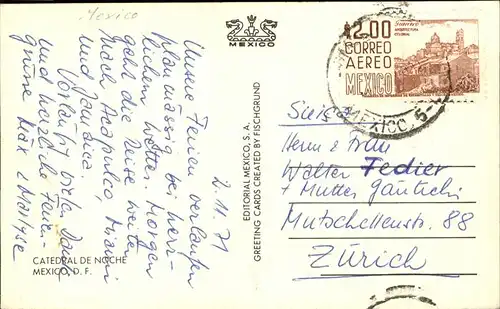 Mexico
MEXICO
$2.00
CORREO
AEREO
MEXICO
Guerrero
ARQUITECTURA
COLONIAL
MEXICO 5
2.11.71
Unsere Ferien verlaufen
planmässig bei herr-
lichem Wetter. Morgen
geht die Reise weiter
nach Acapulco, Miami
und Jamaica.
Vorläufig besten Dank
und herzliche Ferien-
grüsse Max + Marlyse
CATEDRAL DE NOCHE
MEXICO, D. F.
EDITORIAL MEXICO, S. A.
GREETING CARDS CREATED BY FISCHGRUND
Herrn & Frau
Walter Fedier
+ Mutter Gäutschi
Mutschellenstr. 88
Zürich